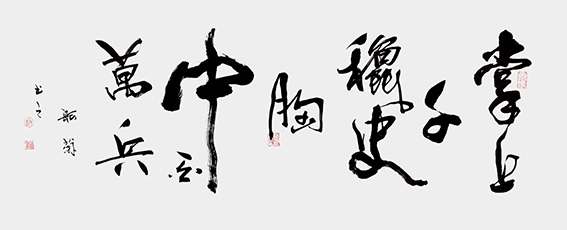 掌上
千
龝史
胸
中百
萬兵